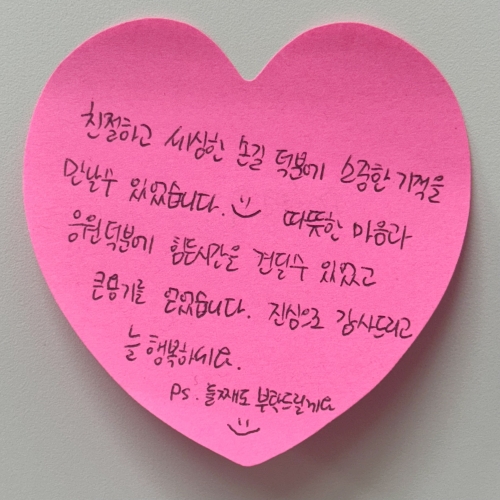 친절하고 세심한 손길 덕분에 소중한 기적을
만날수 있었습니다. 따뜻한 마음과
응원덕분에 힘든시간을 견딜수 있었고
큰용기를 얻었습니다. 진심으로 감사드리고
늘 행복하세요.
Ps. 둘째도 부탁드릴게요